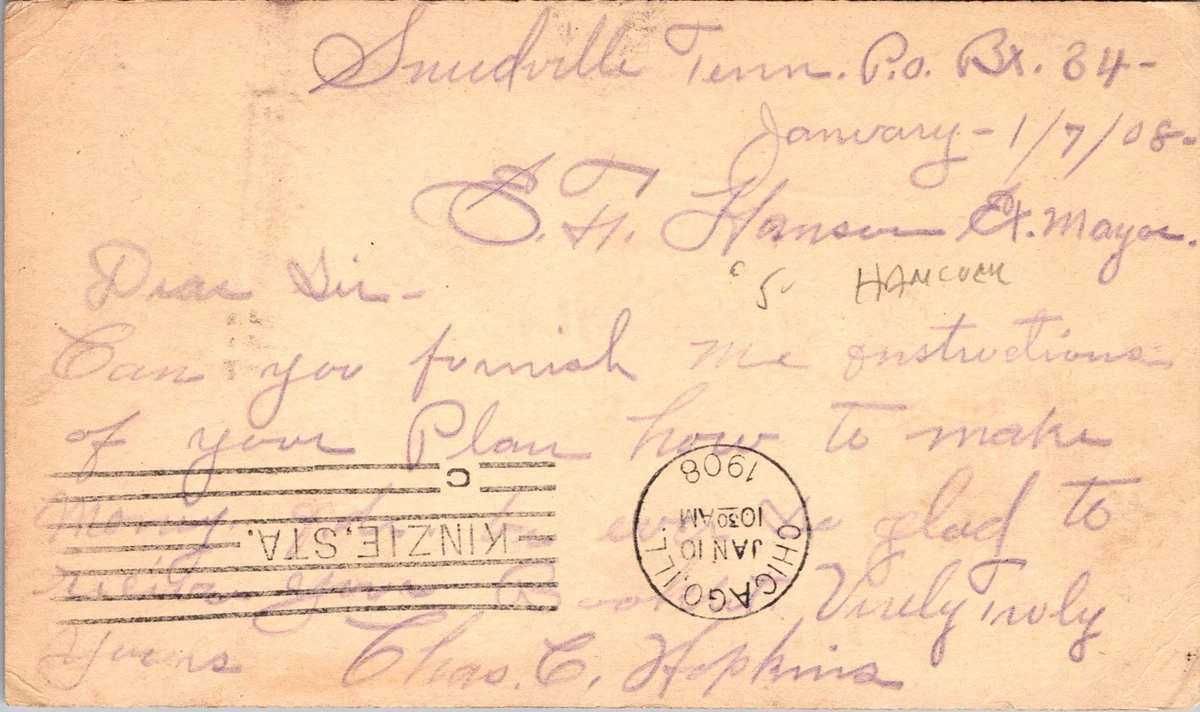 Sneedville Tenn. P.O. Bx. 34-
January - 1/7/08-
E. H. Hanson Ex. Mayor.
Dear Sir-
"5" HANCOCK
Can you furnish me instructions
of your Plan how to make
Money glad to
your Books Verely Truly
Yours Chas. C. Hopkins
C
KINZIE. STA.
CHICAGO, ILL.
JAN 10
10 30 AM
1908